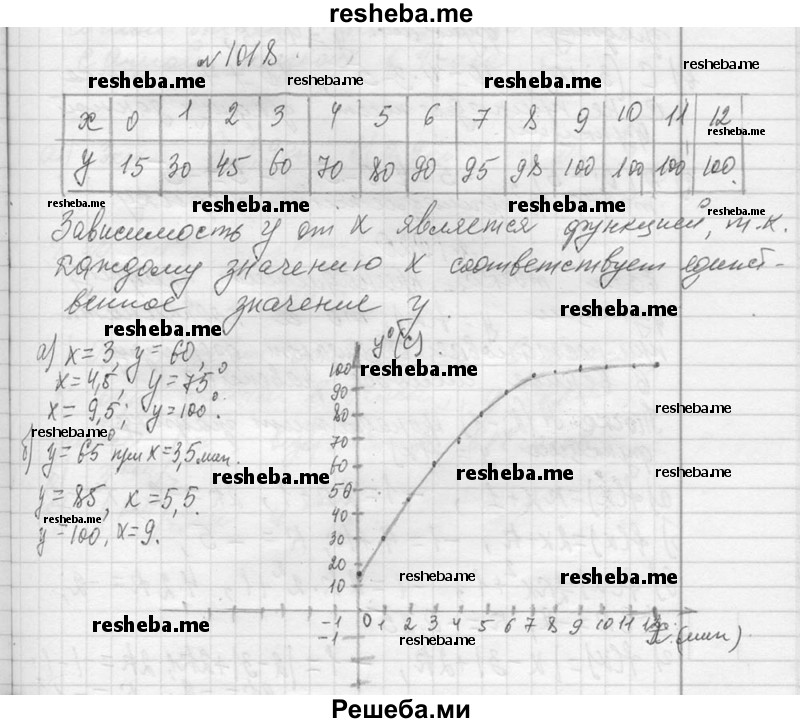 resheba.me
№ 1018.
resheba.me resheba.me resheba.me resheba.me
x 0 1 2 3 4 5 6 7 8 9 10 11 12
resheba.me
y 15 30 45 60 70 80 90 95 98 100 100 100 100.
resheba.me resheba.me resheba.me resheba.me
Зависимость y от x является функцией, т.к.
каждому значению x соответствует единст-
венное значение y.
resheba.me resheba.me
а) x = 3, y = 60,
x = 4,5, y = 75°
x = 9,5; y = 100°.
resheba.me
б) y = 65° при x = 3,5 мин.
resheba.me
y = 85, x = 5,5.
resheba.me
y = 100, x = 9.
y°(c)
resheba.me
100
90
80
resheba.me
70
60
resheba.me resheba.me
50
40
30
20
resheba.me resheba.me
10
-1 0 1 2 3 4 5 6 7 8 9 10 11 12
x (мин)
-1
resheba.me resheba.me
Решеба.ми